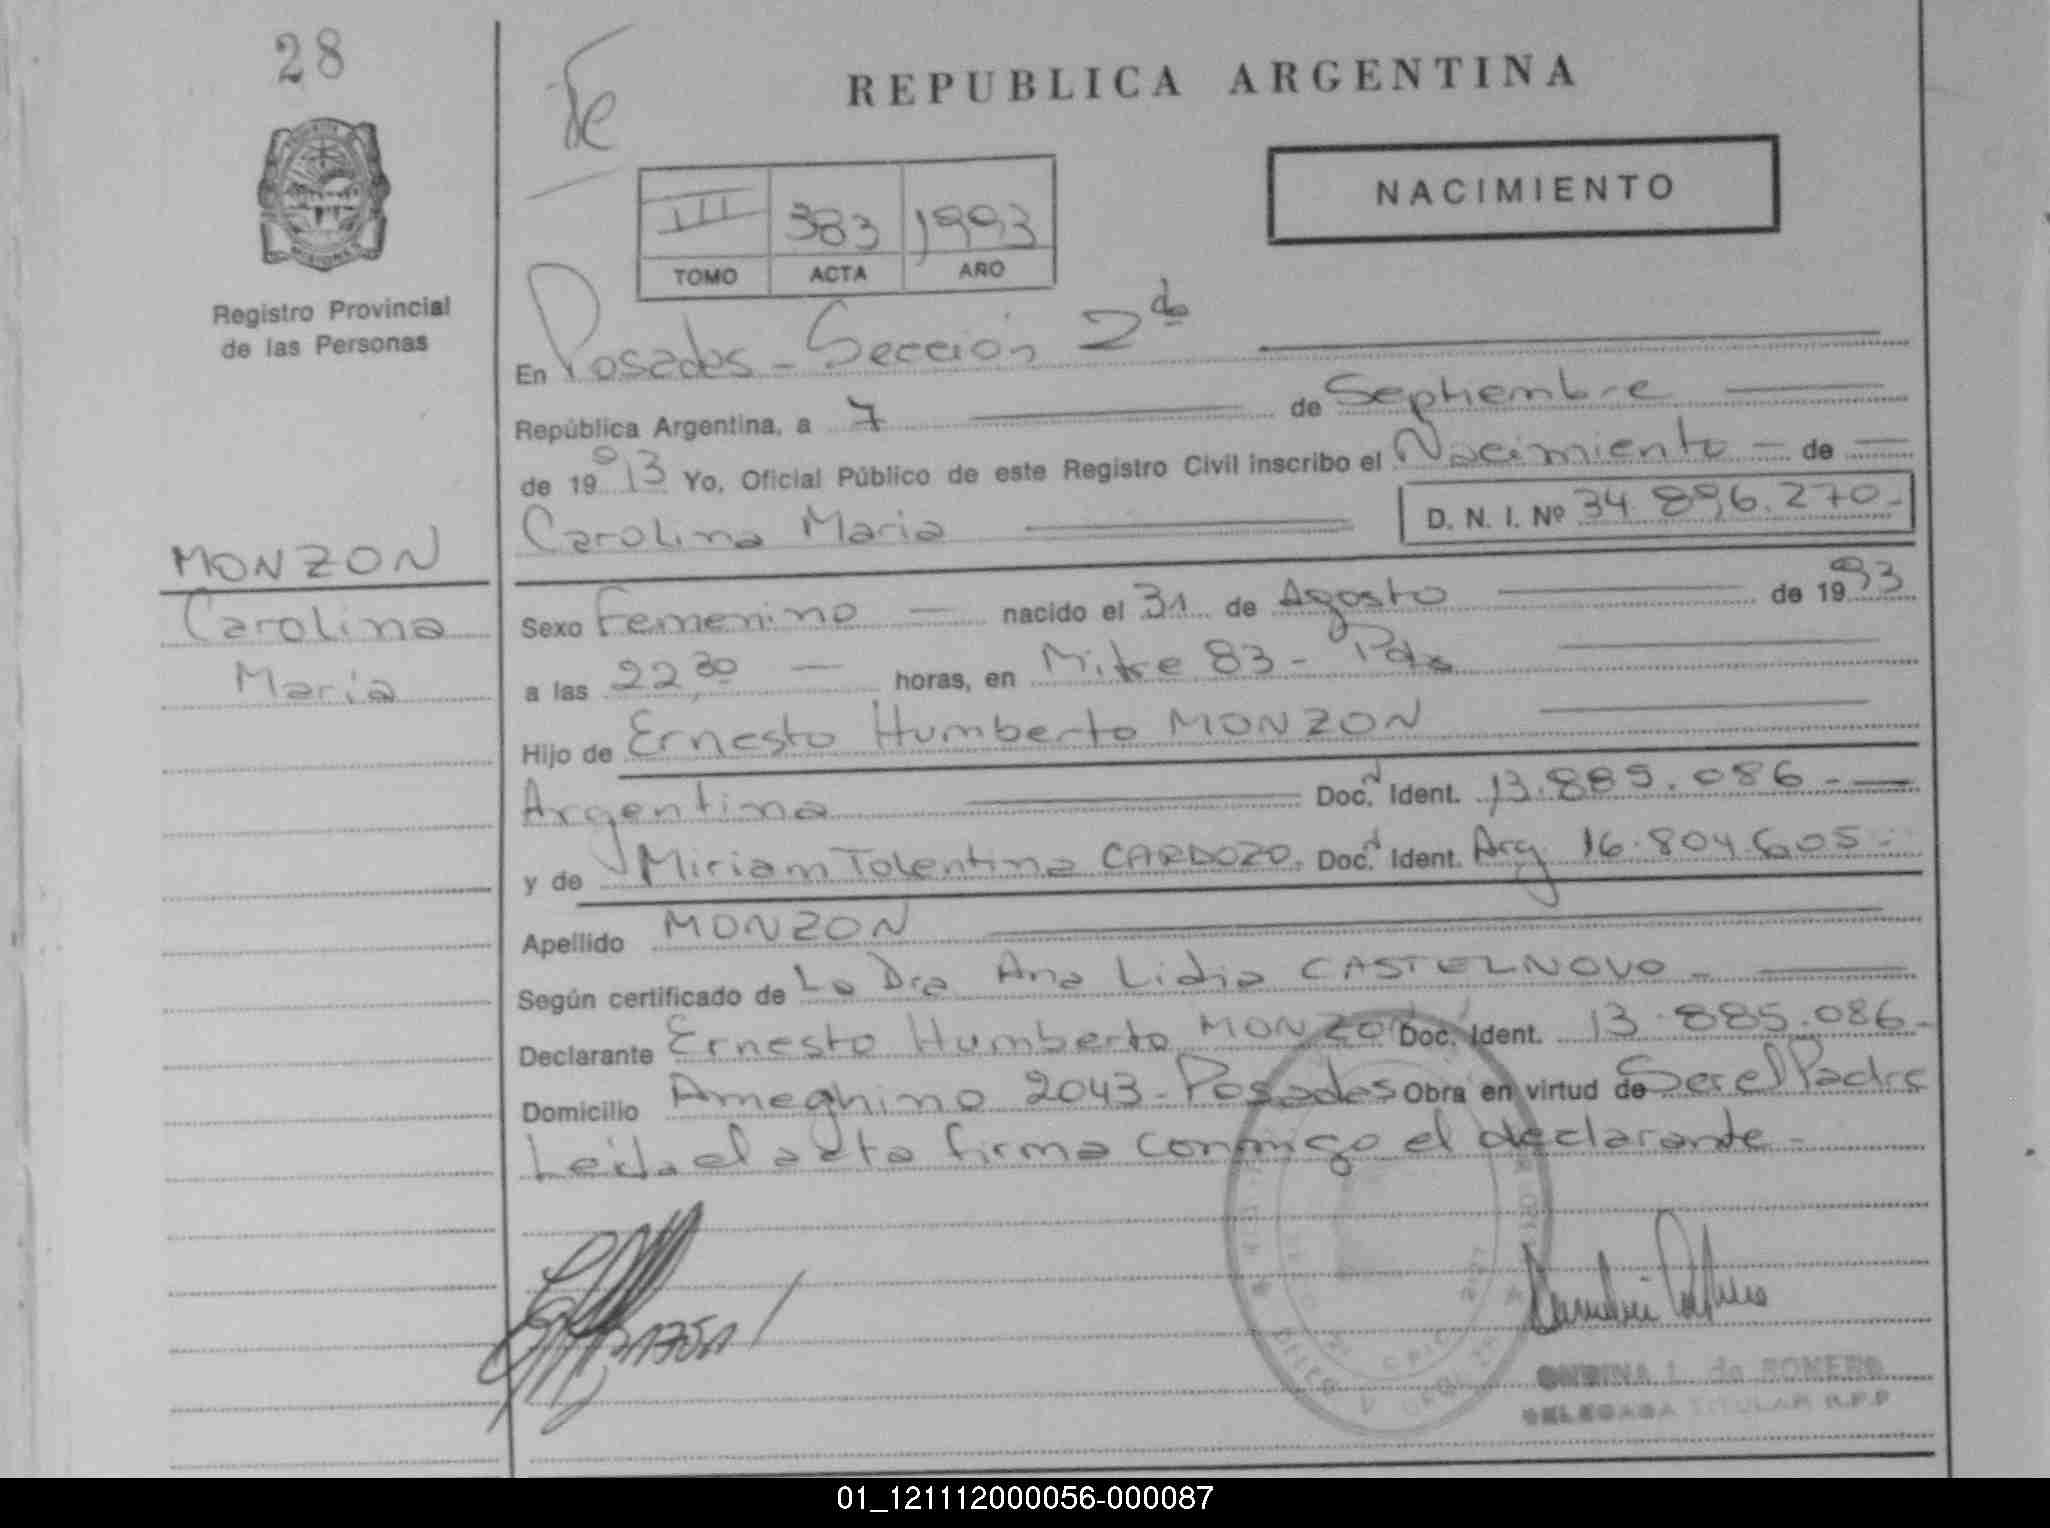 28
REPUBLICA ARGENTINA
NACIMIENTO
III 383 1993
TOMO ACTA AÑO
Registro Provincial
de las Personas
En Posadas - Sección 2da
República Argentina, a 7 de Septiembre
de 1993 Yo, Oficial Público de este Registro Civil inscribo el Nacimiento - de
Carolina Maria D. N. I. Nº 34.896.270-
MONZON
Carolina
María
Sexo Femenino nacido el 31 de Agosto de 1993
a las 22,30 horas, en Mitre 83 - Pdas
Hijo de Ernesto Humberto MONZON
Argentina Doc. Ident. 13.885.086.-
y de Miriam Tolentina CARDOZO. Doc. Ident. Arg 16.804.605.-
Apellido MONZON
Según certificado de La Dra Ana Lidia CASTELNOVO -
Declarante Ernesto Humberto MONZON Doc. Ident. 13.885.086-
Domicilio Ameghino 2043 - Posadas Obra en virtud de Ser el Padre
Leída el acta firma conmigo el declarante -
ONDINA L. de ROMERO
DELEGADA TITULAR R.P.P
01_121112000056-000087